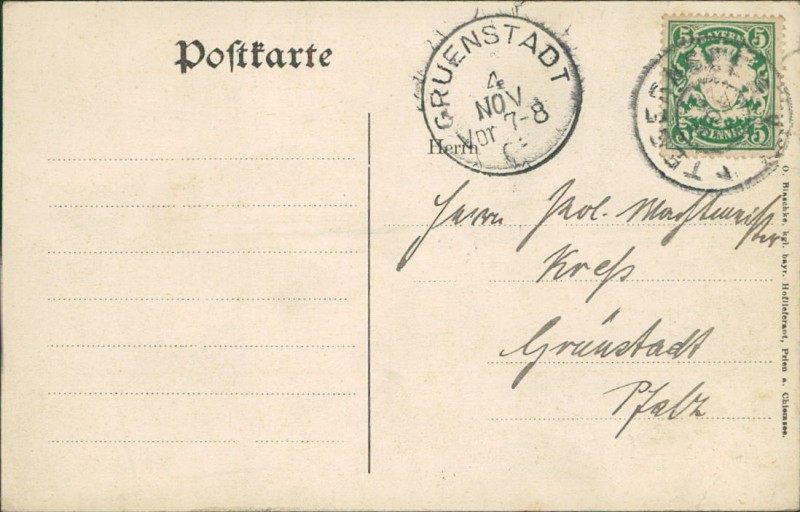 Postkarte
GRUENSTADT
4
NOV
Vor 7-8
5 BAYERN 5
5 PFENNIG 5
Herrn
Herrn Pol. Wachtmeister
Kreß
Grünstadt
Pfalz
O. Blaschke, kgl. bayr. Hoflieferant, Prien a. Chiemsee.